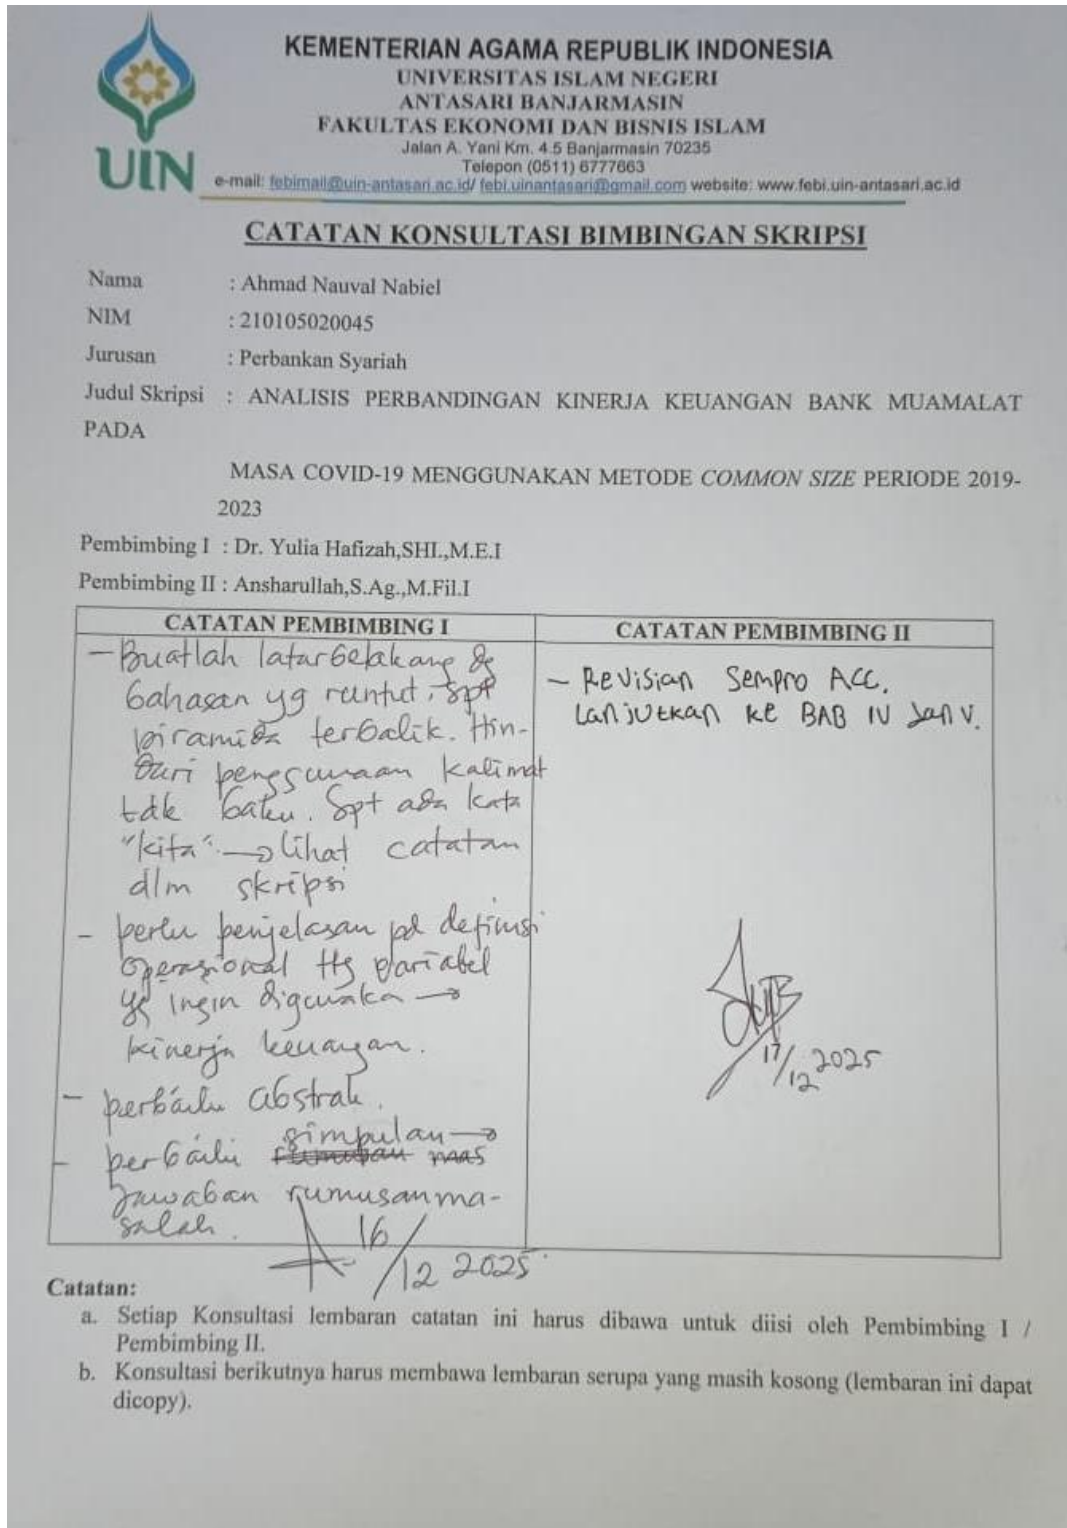 KEMENTERIAN AGAMA REPUBLIK INDONESIA
UNIVERSITAS ISLAM NEGERI
ANTASARI BANJARMASIN
FAKULTAS EKONOMI DAN BISNIS ISLAM
Jalan A. Yani Km. 4.5 Banjarmasin 70235
Telepon (0511) 6777663
e-mail: febimail@uin-antasari.ac.id/ febi.uinantasari@gmail.com website: www.febi.uin-antasari.ac.id
UIN
CATATAN KONSULTASI BIMBINGAN SKRIPSI
Nama : Ahmad Nauval Nabiel
NIM : 210105020045
Jurusan : Perbankan Syariah
Judul Skripsi : ANALISIS PERBANDINGAN KINERJA KEUANGAN BANK MUAMALAT
PADA
MASA COVID-19 MENGGUNAKAN METODE COMMON SIZE PERIODE 2019-
2023
Pembimbing I : Dr. Yulia Hafizah,SHI.,M.E.I
Pembimbing II : Ansharullah,S.Ag.,M.Fil.I
CATATAN PEMBIMBING I
- Buatlah latar belakang dg
bahasan yg runtut, spt
piramida terbalik. Hin-
dari penggunaan kalimat
tdk baku. Spt ada kata
"kita" → lihat catatan
dlm skripsi
- perlu penjelasan pd definisi
operasional ttg variabel
yg ingin digunaka →
kinerja keuangan.
- perbaiki abstrak.
- perbaiki simpulan →
jawaban rumusan ma-
salah.
16/12 2025
CATATAN PEMBIMBING II
- Revisian Sempro ACC.
Lanjutkan ke BAB IV dan V.
17/12 2025
Catatan:
a. Setiap Konsultasi lembaran catatan ini harus dibawa untuk diisi oleh Pembimbing I /
Pembimbing II.
b. Konsultasi berikutnya harus membawa lembaran serupa yang masih kosong (lembaran ini dapat
dicopy).